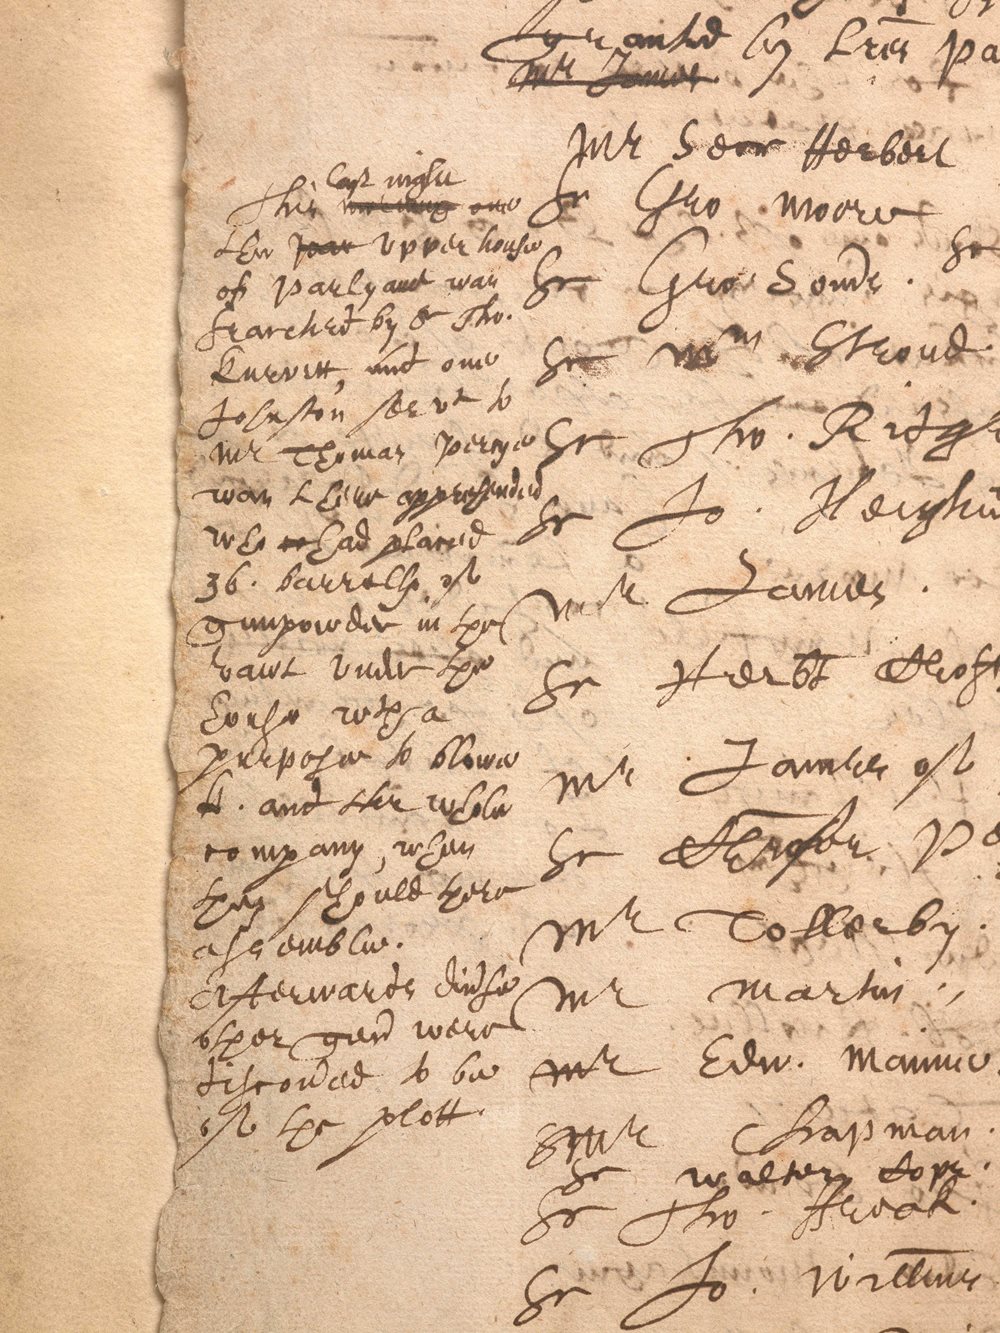 granted by Lres Pa
Mr James
Mr Secr Herbert
Sr Geo Moore
Sr Geo Somrs.
Sr
Sr Wm Stroud.
Sr Tho. Ridge
Sr Jo.
Mr James.
Sr Herbt Croft
Mr James of
Sr Christofer Pe
Mr Tollerby.
Mr Martin.
Mr Edw. Mannne
Mr Chapman.
Sr Walter Cope.
Sr Tho. Freak.
Sr Jo.
last night
This morning one
the Upper house
of Parlyamt was
searched by Sr Tho.
Knevett, and one
Johnson servt to
Mr Thomas Percye
was there apprehended
who had placed
36. barrells of
gunpowder in the
vawt under the
house wth a
purpose to blowe
K. and the whole
company, when
they should there
assemble.
Afterwards divrse
other gent were
discovred to be
of the plott.